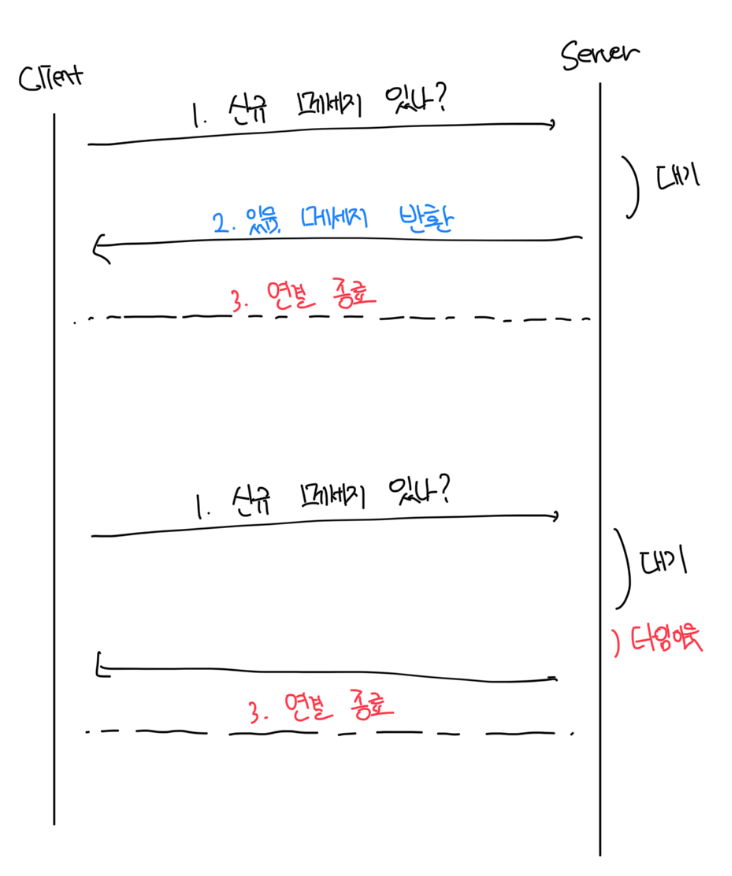 Client
Server
1. 신규 메세지 있나?
대기
2. 있음. 메세지 반환
3. 연결 종료
1. 신규 메세지 있나?
대기
타임아웃
3. 연결 종료